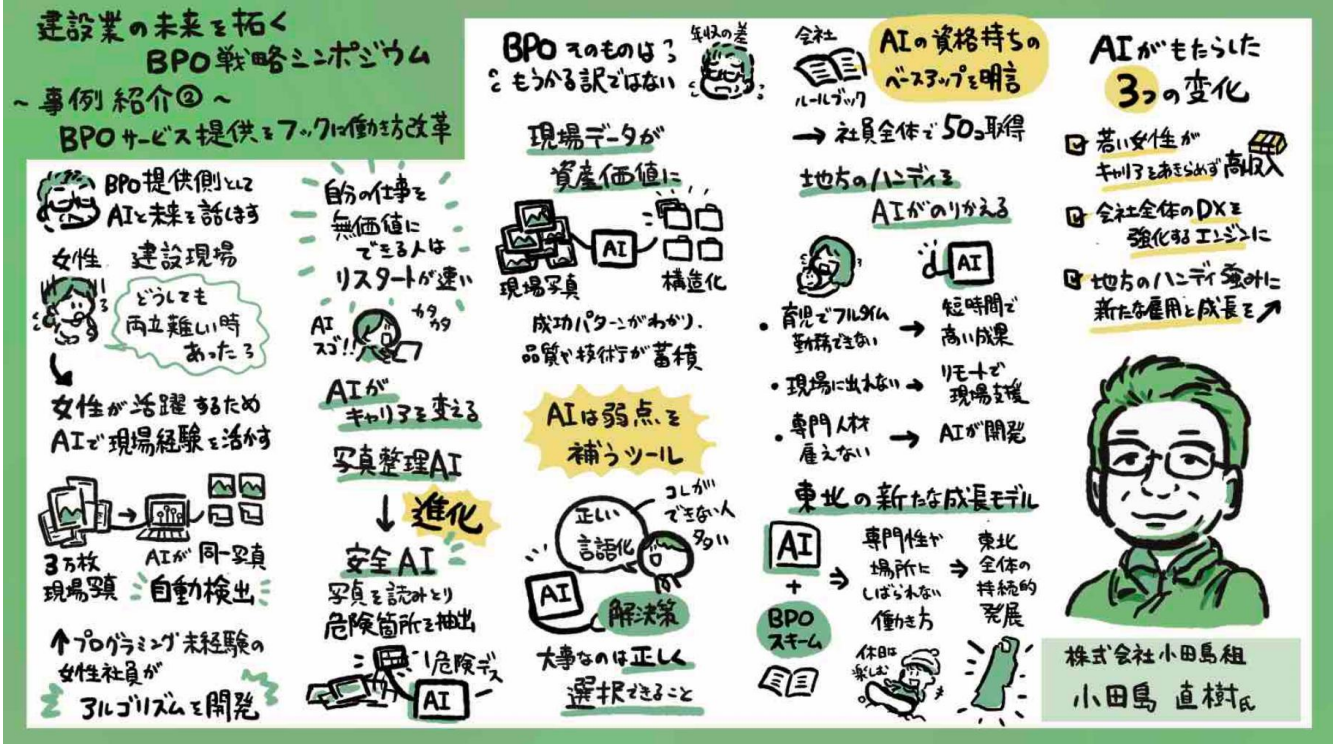 建設業の未来を拓く
BPO戦略シンポジウム
~ 事例紹介② ~
BPOサービス提供をフックに働き方改革
BPO提供側として
AIと未来を話します
女性 建設現場
どうしても
両立難しい時
あったろ
女性が活躍するため
AIで現場経験を活かす
3万枚
現場写真
AIが同一写真
自動検出
↑プログラミング未経験の
女性社員が
アルゴリズムを開発
自分の仕事を
無価値に
できる人は
リスタートが速い
AI
スゴ!!
カタ
カタ
AIが
キャリアを変える
写真整理AI
↓ 進化
安全AI
写真を読みとり
危険箇所を抽出
!危険デス
AI
BPOそのものは
もうかる訳ではない
年収の差
現場データが
資産価値に
AI
現場写真
構造化
成功パターンがわかり、
品質や技術が蓄積
AIは弱点を
補うツール
正しい
言語化
コレが
できない人
多い
AI
解決策
大事なのは正しく
選択できること
会社
ルールブック
AIの資格持ちの
ベースアップを明言
→ 社員全体で50コ取得
地方のハンディを
AIがのりかえる
AI
・育児でフルタイム
勤務できない
→ 短時間で
高い成果
・現場に出れない → リモートで
現場支援
・専門人材
雇えない
→ AIが開発
東北の新たな成長モデル
AI
+
BPO
スキーム
⇒ 専門性や
場所に
しばられない
働き方
⇒ 東北
全体の
持続的
発展
休日は
楽しむ
AIがもたらした
3つの変化
☑ 若い女性が
キャリアをあきらめず高収入
☑ 会社全体のDXを
強化するエンジンに
☑ 地方のハンディ強みに
新たな雇用と成長を↗
株式会社小田島組
小田島 直樹氏